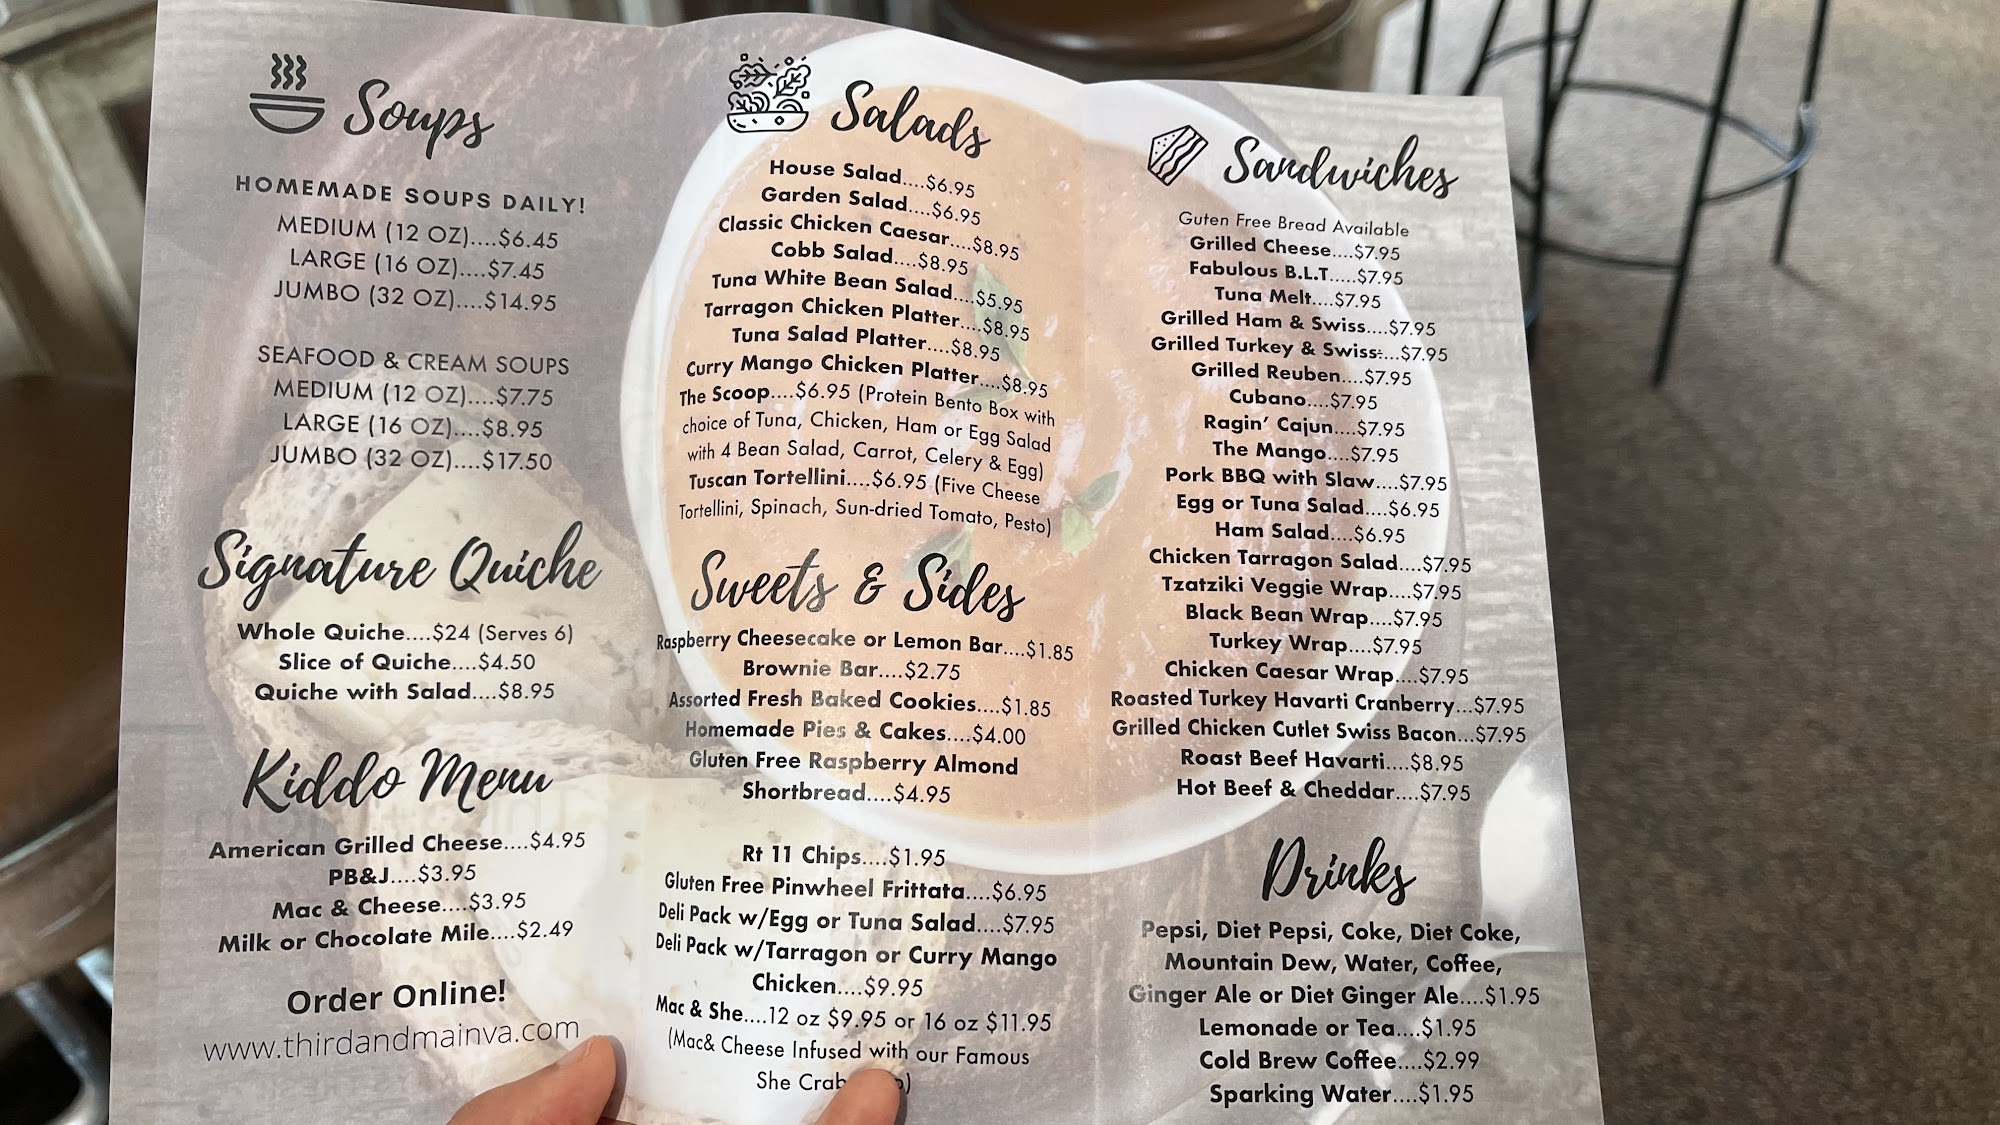 Soups
HOMEMADE SOUPS DAILY!
MEDIUM (12 OZ)....$6.45
LARGE (16 OZ)....$7.45
JUMBO (32 OZ)....$14.95
SEAFOOD & CREAM SOUPS
MEDIUM (12 OZ)....$7.75
LARGE (16 OZ)....$8.95
JUMBO (32 OZ)....$17.50
Signature Quiche
Whole Quiche....$24 (Serves 6)
Slice of Quiche....$4.50
Quiche with Salad....$8.95
Kiddo Menu
American Grilled Cheese....$4.95
PB&J....$3.95
Mac & Cheese....$3.95
Milk or Chocolate Mile....$2.49
Order Online!
www.thirdandmainva.com
Salads
House Salad....$6.95
Garden Salad....$6.95
Classic Chicken Caesar....$8.95
Cobb Salad....$8.95
Tuna White Bean Salad....$5.95
Tarragon Chicken Platter....$8.95
Tuna Salad Platter....$8.95
Curry Mango Chicken Platter....$8.95
The Scoop....$6.95 (Protein Bento Box with
choice of Tuna, Chicken, Ham or Egg Salad
with 4 Bean Salad, Carrot, Celery & Egg)
Tuscan Tortellini....$6.95 (Five Cheese
Tortellini, Spinach, Sun-dried Tomato, Pesto)
Sweets & Sides
Raspberry Cheesecake or Lemon Bar....$1.85
Brownie Bar....$2.75
Assorted Fresh Baked Cookies....$1.85
Homemade Pies & Cakes....$4.00
Gluten Free Raspberry Almond
Shortbread....$4.95
Rt 11 Chips....$1.95
Gluten Free Pinwheel Frittata....$6.95
Deli Pack w/Egg or Tuna Salad....$7.95
Deli Pack w/Tarragon or Curry Mango
Chicken....$9.95
Mac & She....12 oz $9.95 or 16 oz $11.95
(Mac& Cheese Infused with our Famous
She Crab
Sandwiches
Guten Free Bread Available
Grilled Cheese....$7.95
Fabulous B.L.T.....$7.95
Tuna Melt....$7.95
Grilled Ham & Swiss....$7.95
Grilled Turkey & Swiss:...$7.95
Grilled Reuben....$7.95
Cubano....$7.95
Ragin' Cajun....$7.95
The Mango....$7.95
Pork BBQ with Slaw....$7.95
Egg or Tuna Salad....$6.95
Ham Salad....$6.95
Chicken Tarragon Salad....$7.95
Tzatziki Veggie Wrap....$7.95
Black Bean Wrap....$7.95
Turkey Wrap....$7.95
Chicken Caesar Wrap....$7.95
Roasted Turkey Havarti Cranberry...$7.95
Grilled Chicken Cutlet Swiss Bacon...$7.95
Roast Beef Havarti....$8.95
Hot Beef & Cheddar....$7.95
Drinks
Pepsi, Diet Pepsi, Coke, Diet Coke,
Mountain Dew, Water, Coffee,
Ginger Ale or Diet Ginger Ale....$1.95
Lemonade or Tea....$1.95
Cold Brew Coffee....$2.99
Sparking Water....$1.95